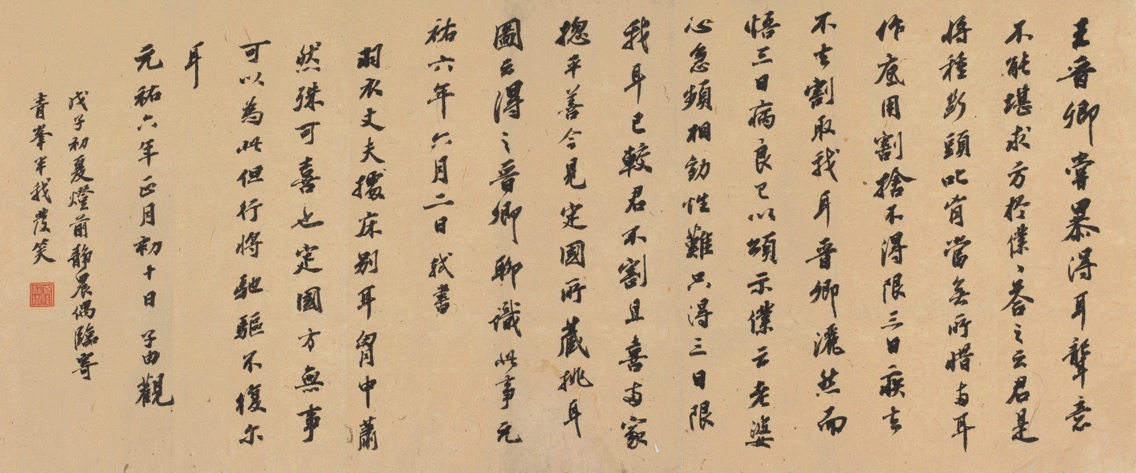 王晉卿嘗暴得耳聾意
不能堪求方於僕僕答之云君是
將種斷頭穴胷當無所惜兩耳
作底用割捨不得限三日疾去
不去割取我耳晉卿灑然而
悟三日病良已以頌示僕云老婆
心急頻相勸性難只得三日限
我耳已較君不割且喜兩家
揔平善今見定國所藏挑耳
圖云得之晉卿聊識此事元
祐六年六月二日 軾書
羽衣丈夫據床剔耳胷中蕭
然殊可喜也定國方無事
可以為此但行將馳驅不復尔
耳
元祐六年正月初十日 子由觀
戊子初夏燈前靜農偶臨寄
青峯半我發笑